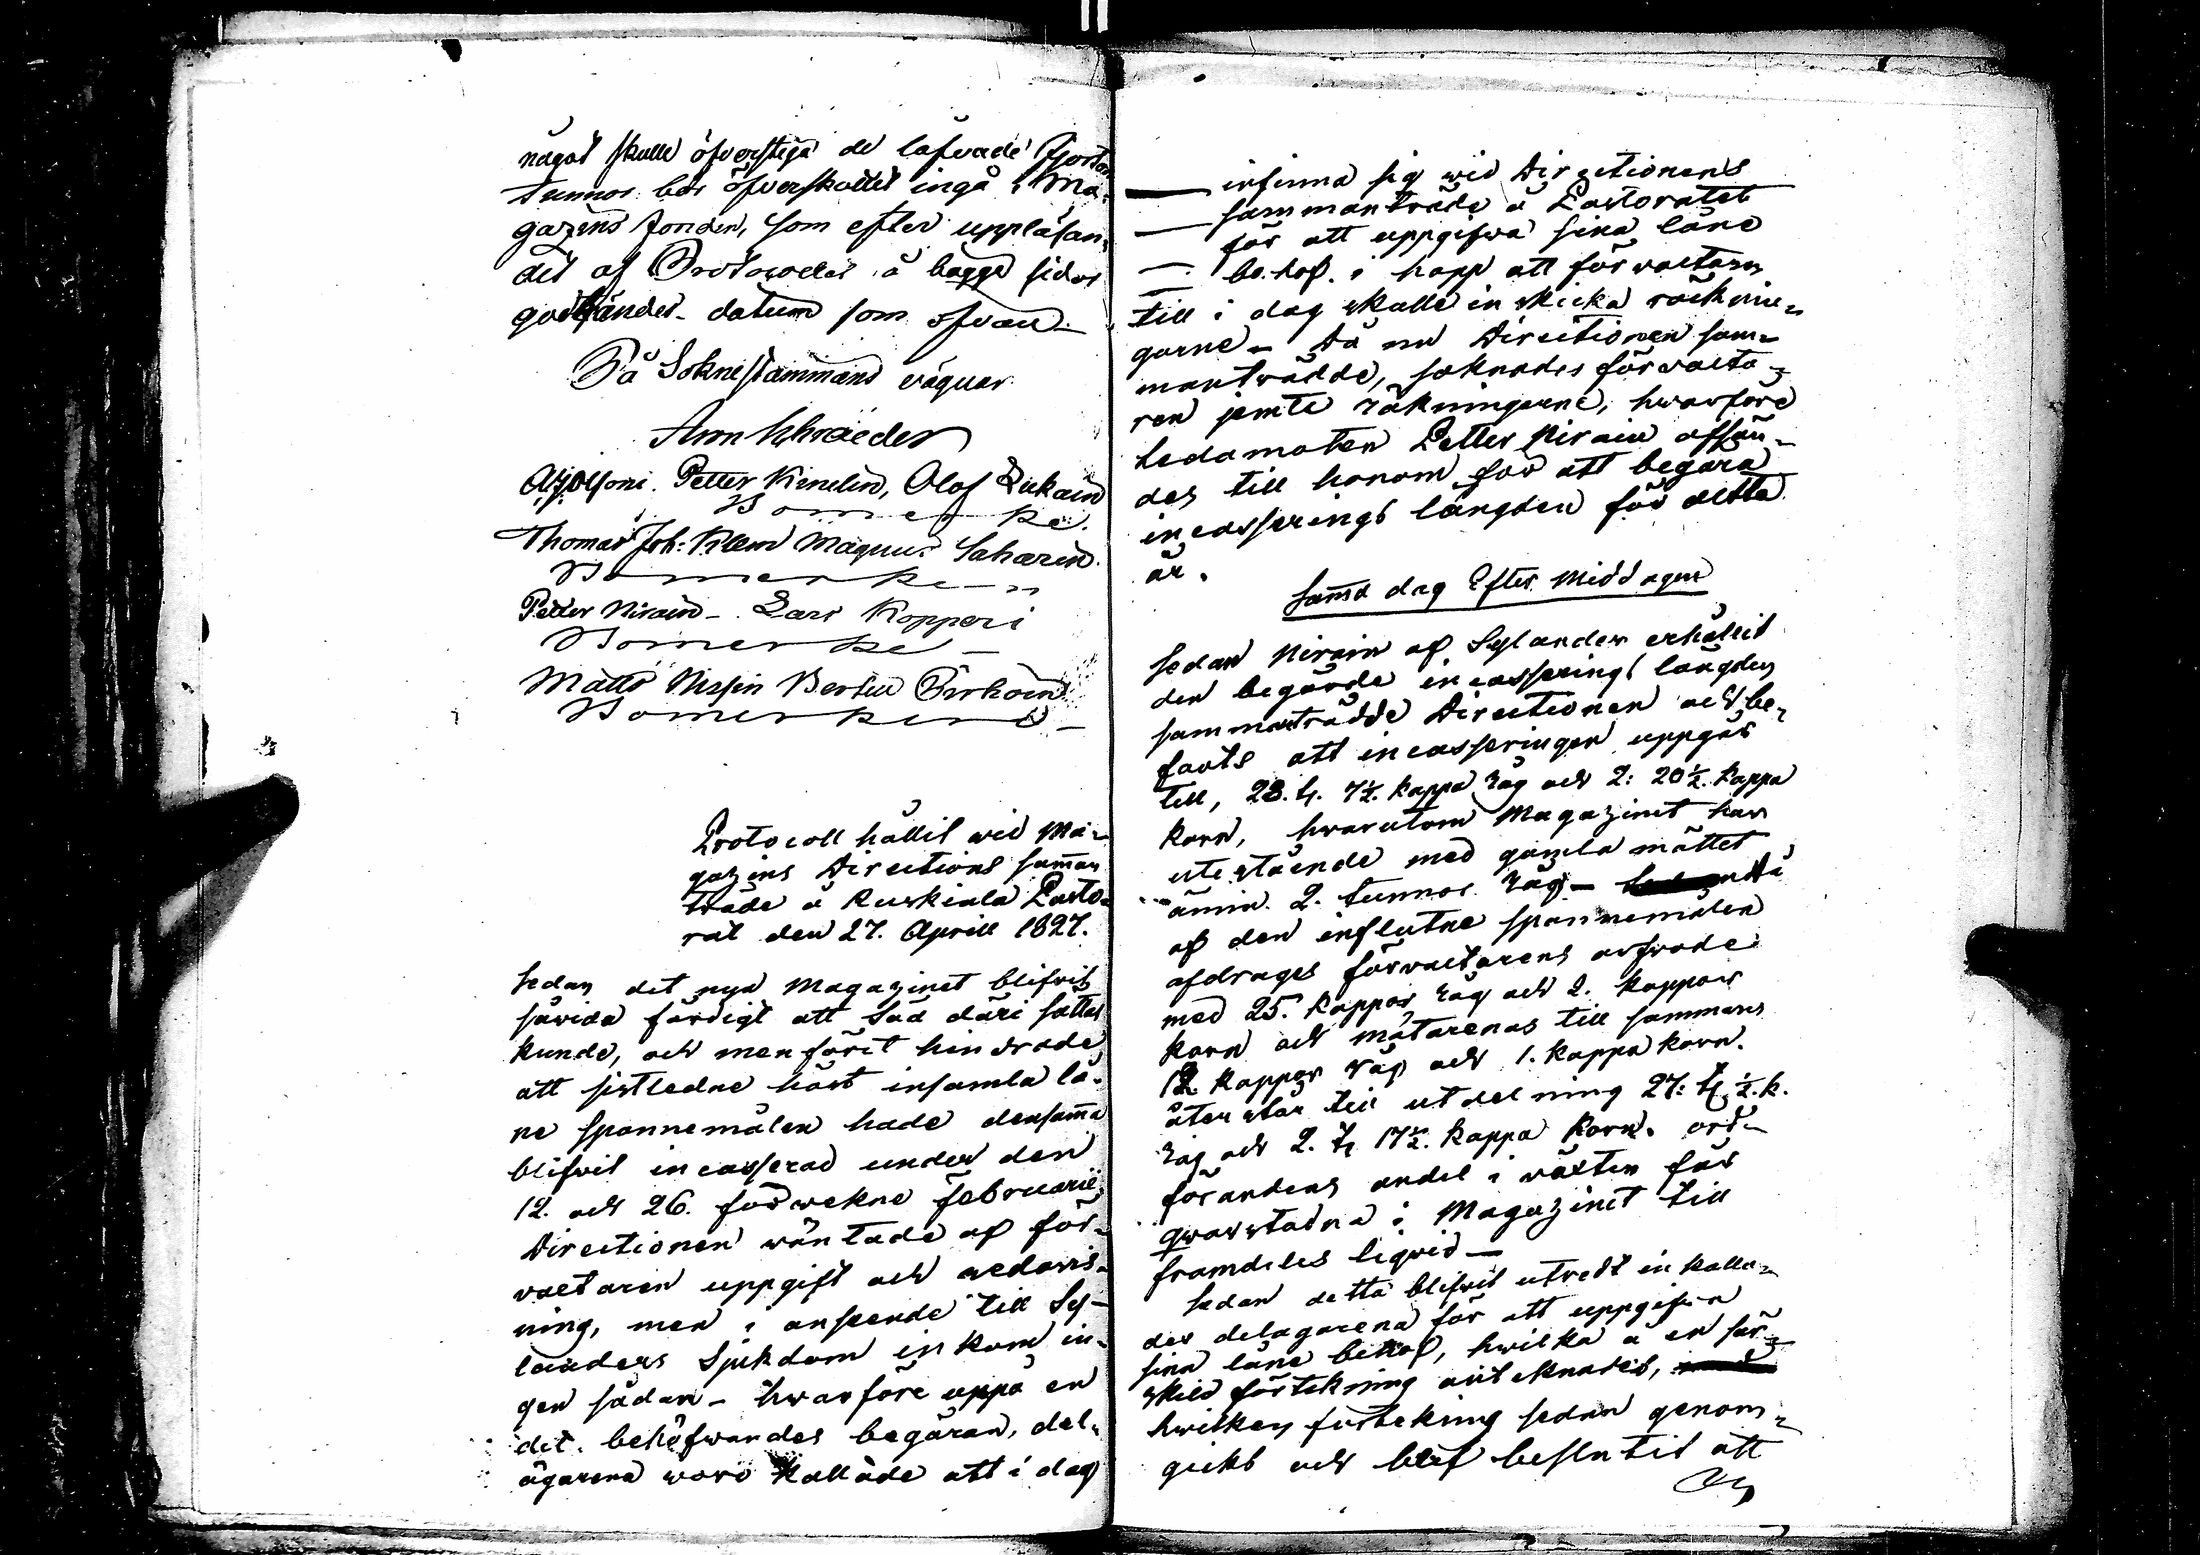 något skulle öfverstiga de låfvade Fjorton
tunnor bör öfverskottet ingå i Ma-
gazins fonden, som efter uppläsan-
det af Protocollet å bägge sidor
godkändes datum som ofvan.
På Soknestämmans vägnar
Aron Schraeder
Petter Kinulin, Olof Lukain
Bomerke.
Thomas Joh: Magnus Saharin.
Bomerken
Petter Nirain - Lars Kopperi
Bomerke -
Matts Bertil
Bomerken -
Protocoll hållit wid Ma-
gazins Directions samman
träde å Ruskiala Pasto-
rat den 27. Aprill 1827.
Sedan det nya Magazinet blifvit
såwida färdigt att Säd däri sättas
kunde, och menföret hindrade
att sistledne höst insamla lå-
ne spannemålen hade densamma
blifvit incasserad under den
12. och 26. förwekne februarii
Directionen wäntade af för-
valtaren uppgift och redovis-
ning, men i anseende till Sy-
landers Sjukdom inkom in-
gen sådan - hwarföre uppå en
del behöfwandes begäran, del-
ägarena woro kallade att i dag
infinna sig wid Directionens
sammanträde å Pastoratet
för att uppgifwa sina låne
behof. i hopp att förvaltaren
till i dag skulle inskicka räknin-
garne - då nu Directionen sam-
manträdde, saknades förvalta-
ren jemte räkningarne, hwarföre
ledamoten Petter Nirain affän-
des till honom för att begära
incasserings längden för detta
år.
Samma dag Efter Middagen
Sedan Nirain af Sylander erhållit
den begärde incasserings längden
sammanträdde Directionen och be-
fants att incasseringen uppgår
till, 28. t. 7½. kappa råg och 2: 20½. kappa
korn, hwarutom Magazinet har
utestående med gamla måttet
ännu 2. tunnor råg - då
af den influtne spannemålen
afdrages förvaltarens arfvode
med 25. kappar råg och 2. kappar
korn och mätarenas till sammans
12. kappar råg och 1. kappa korn.
återstår till utdelning 27: t. ½. k.
råg och 2. t 17½. kappa korn. ord-
förandens andel i wäxten får
qwarstadna i Magazinet till
framdeles liqvid -
Sedan detta blifvit utredt inkalla-
des delagarena för att uppgifva
sina låne behof, hwilka å en sär-
skild förtekning anteknades,
hwilken förtekning sedan genom-
gicks och blef beslutit att